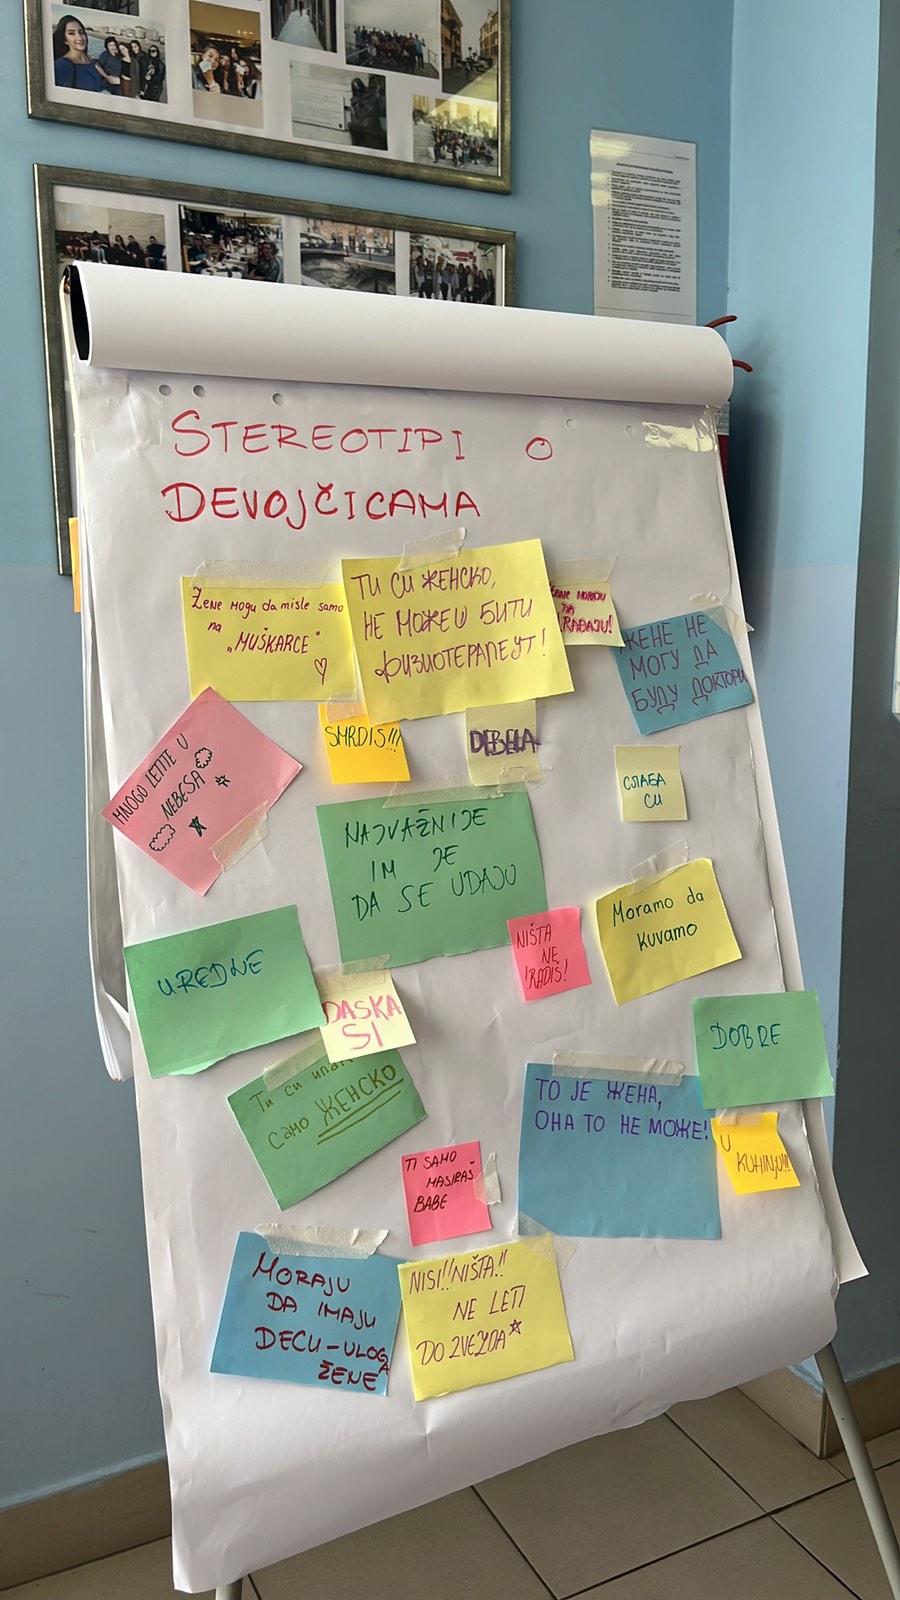 STEREOTIPI O
DEVOJČICAMA
Žene mogu da misle samo
na
„MUŠKARCE"
ТИ СИ ЖЕНСКО,
НЕ МОЖЕШ БИТИ
ФИЗИОТЕРАПЕУТ!
ŽENE MORAJU
DA
RAĐAJU!
ЖЕНЕ НЕ
МОГУ ДА
БУДУ ДОКТОРИ
SMRDIŠ!!!
DEBELA
MNOGO LETITE U
NEBESA
СЛАБА
СИ
NAJVAŽNIJE
IM JE
DA SE UDAJU
Moramo da
kuvamo
NIŠTA
NE
RADIŠ!
UREDNE
DASKA
SI
DOBRE
Ти си ипак
само ЖЕНСКО
ТО ЈЕ ЖЕНА,
ОНА ТО НЕ МОЖЕ!
U
KUHINJU!!!
TI SAMO
MASIRAŠ
BABE
MORAJU
DA IMAJU
DECU-ULOGA
ŽENE
NISI!!NIŠTA!!
NE LETI
DO ZVEZDA